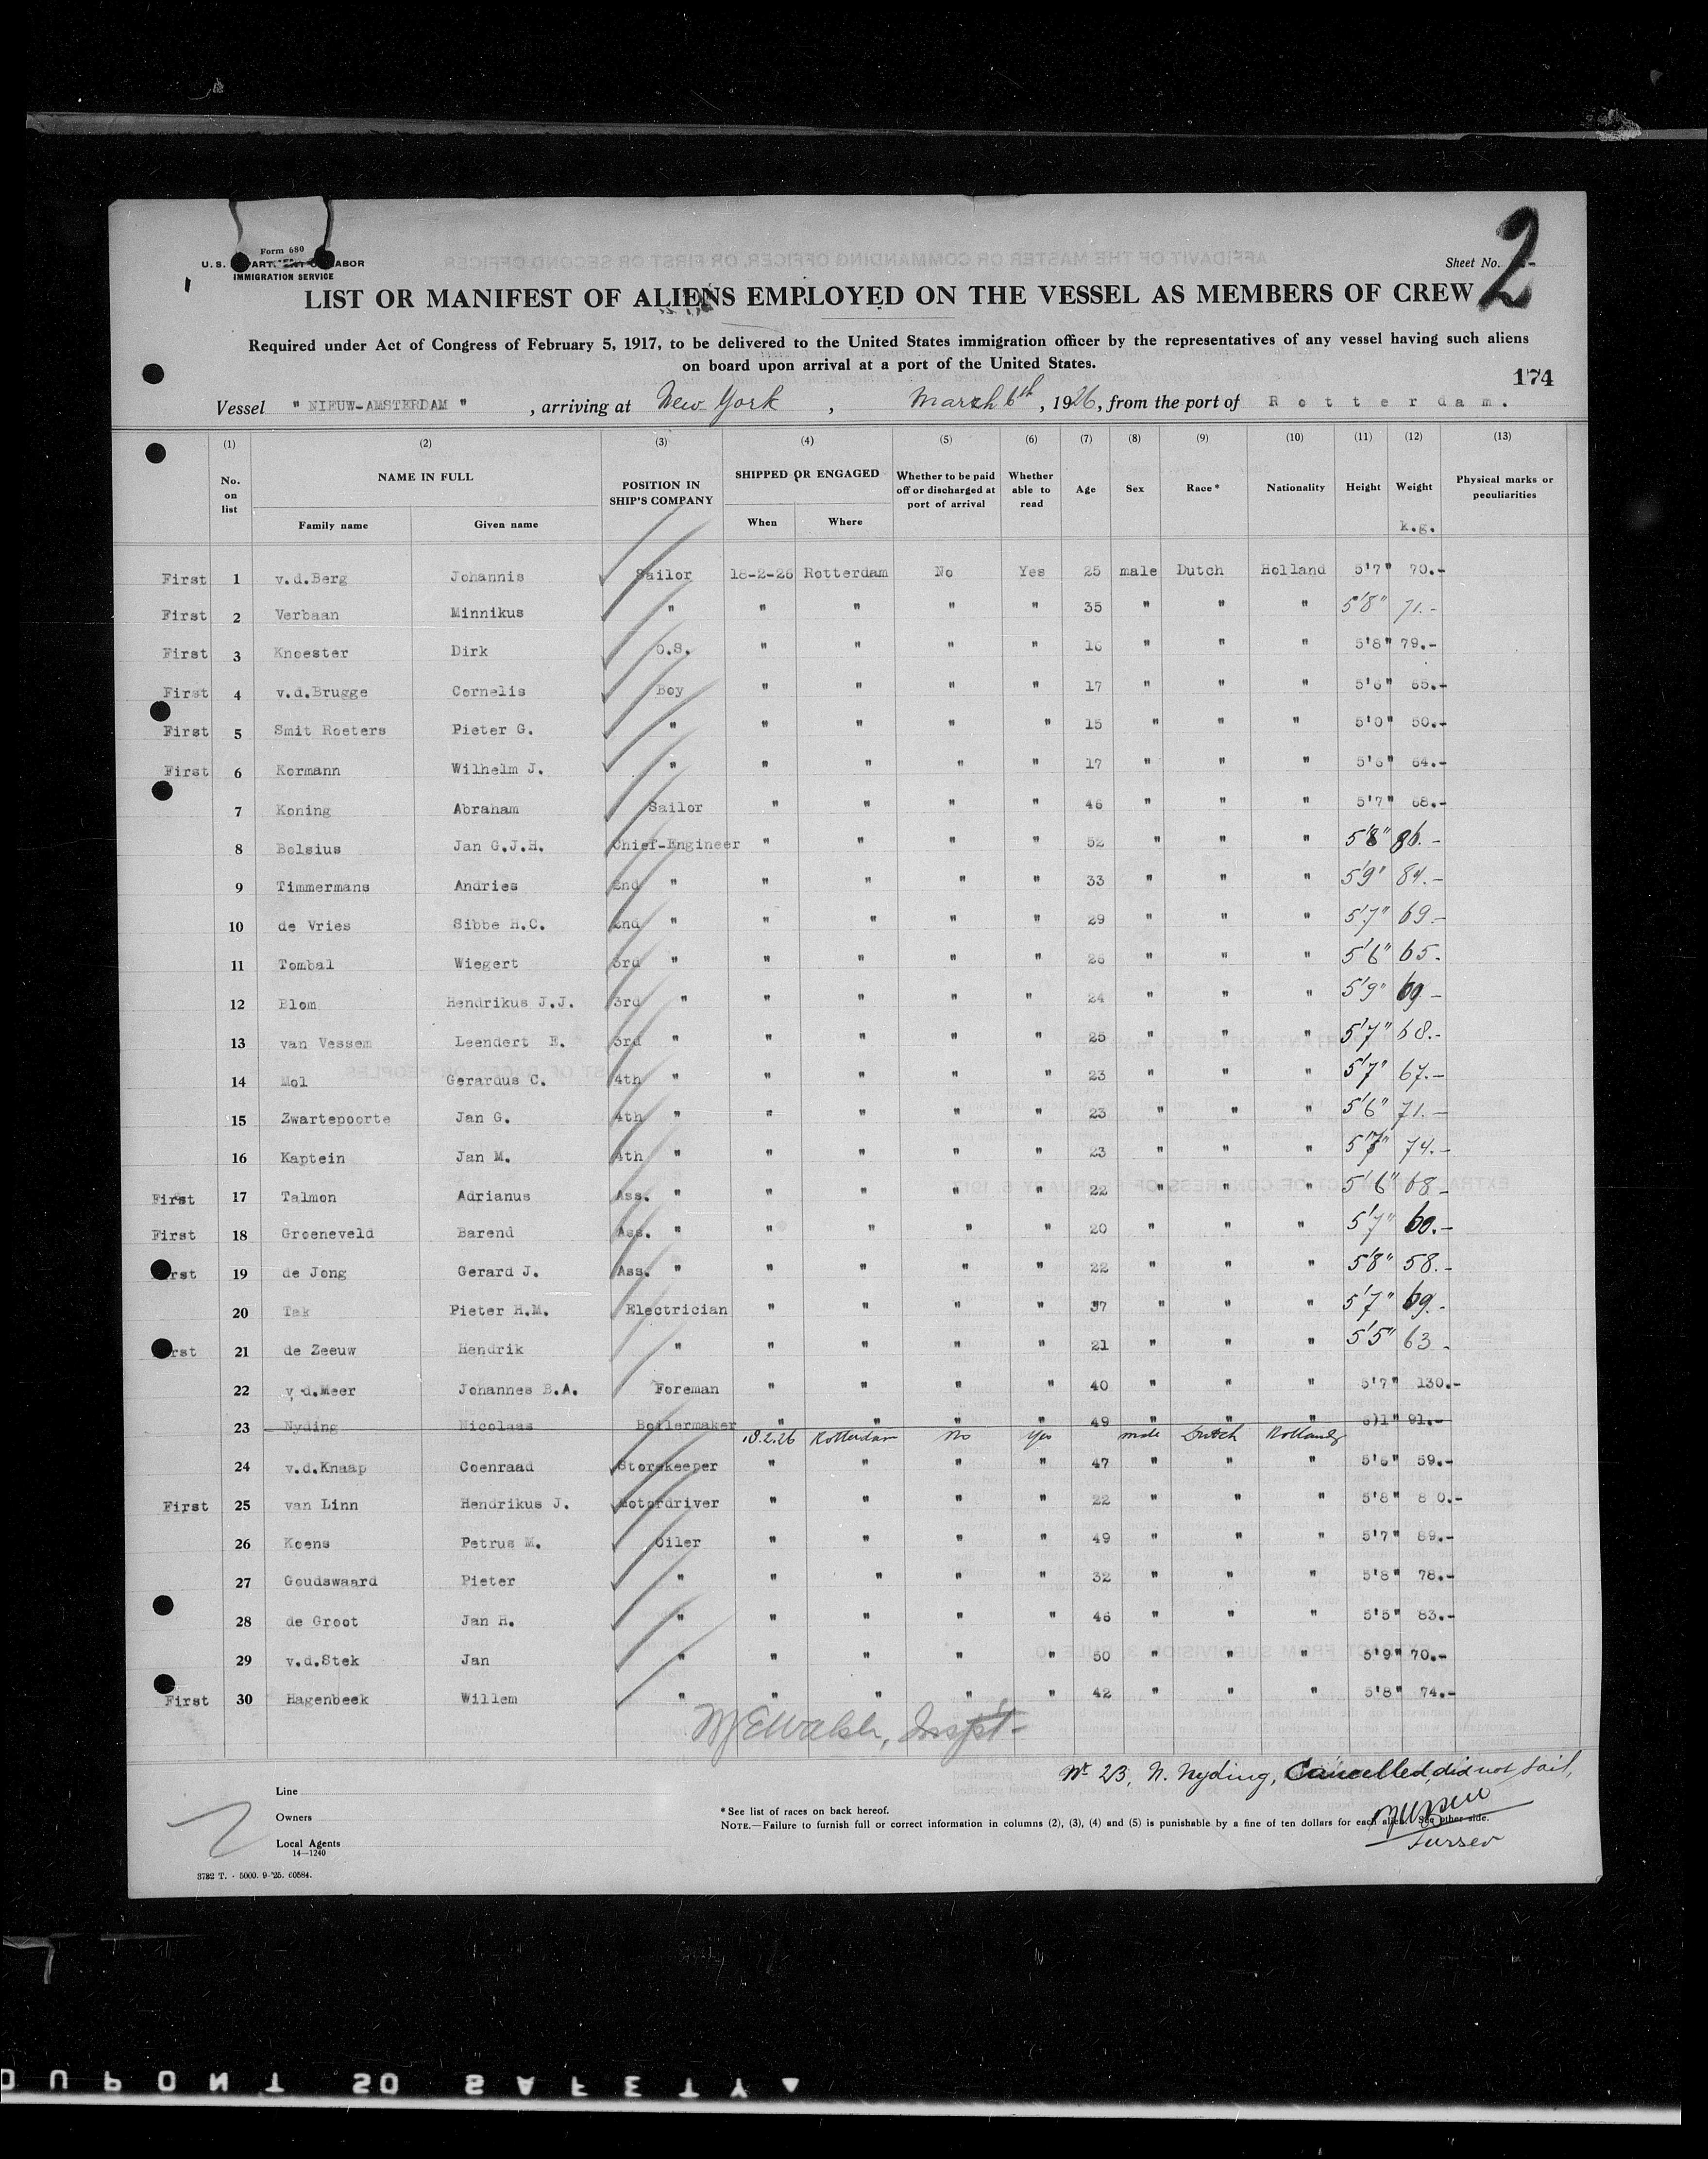 Form 680
U. S. DEPARTMENT OF LABOR
IMMIGRATION SERVICE
Sheet No. 2
LIST OR MANIFEST OF ALIENS EMPLOYED ON THE VESSEL AS MEMBERS OF CREW
Required under Act of Congress of February 5, 1917, to be delivered to the United States immigration officer by the representatives of any vessel having such aliens
on board upon arrival at a port of the United States.
174
Vessel " NIEUW-AMSTERDAM " , arriving at New York , March 6th , 1926, from the port of Rotterdam.
(1) (2) (3) (4) (5) (6) (7) (8) (9) (10) (11) (12) (13)
No. on list NAME IN FULL Family name Given name POSITION IN SHIP'S COMPANY SHIPPED OR ENGAGED When Where Whether to be paid off or discharged at port of arrival Whether able to read Age Sex Race* Nationality Height Weight k.g. Physical marks or peculiarities
First 1 v.d.Berg Johannis Sailor 18-2-26 Rotterdam No Yes 25 male Dutch Holland 5'7" 70.-
First 2 Verbaan Minnikus " " " " " 35 " " " 5'8" 71.-
First 3 Knoester Dirk O.S. " " " " 16 " " " 5'8" 79.-
First 4 v.d.Brugge Cornelis Boy " " " " 17 " " " 5'6" 65.-
First 5 Smit Roeters Pieter G. " " " " " 15 " " " 5'0" 50.-
First 6 Kormann Wilhelm J. " " " " " 17 " " " 5'6" 64.-
7 Koning Abraham Sailor " " " " 46 " " " 5'7" 68.-
8 Bolsius Jan G.J.H. Chief-Engineer " " " " 52 " " " 5'8" 86.-
9 Timmermans Andries 2nd " " " " " 33 " " " 5'9" 84.-
10 de Vries Sibbe H.C. 2nd " " " " " 29 " " " 5'7" 69.-
11 Tombal Wiegert 3rd " " " " " 26 " " " 5'6" 65.
12 Blom Hendrikus J.J. 3rd " " " " " 24 " " " 5'9" 69 -
13 van Vessem Leendert E. 3rd " " " " " 25 " " " 5'7" 68.-
14 Mol Gerardus C. 4th " " " " " 23 " " " 5'7" 67.-
15 Zwartepoorte Jan G. 4th " " " " " 23 " " " 5'6" 71.-
16 Kaptein Jan M. 4th " " " " " 23 " " " 5'7" 74.-
First 17 Talmon Adrianus Ass. " " " " " 22 " " " 5'6" 68 -
First 18 Groeneveld Barend Ass. " " " " " 20 " " " 5'7" 60.-
First 19 de Jong Gerard J. Ass. " " " " " 22 " " " 5'8" 58.-
20 Tak Pieter H.M. Electrician " " " " 37 " " " 5'7" 69.-
First 21 de Zeeuw Hendrik " " " " " 21 " " " 5'5" 63 -
22 v.d.Meer Johannes B.A. Foreman " " " " 40 " " " 5'7" 130.-
23 Nyding Nicolaas Boilermaker " " " " 49 " " " 6)1" 91.-
18.2.26 Rotterdam No Yes male Dutch Holland
24 v.d.Knaap Coenraad Storekeeper " " " " 47 " " " 5'6" 59.-
First 25 van Linn Hendrikus J. Motordriver " " " " 22 " " " 5'8" 8 0.-
26 Koens Petrus M. Oiler " " " " 49 " " " 5'7" 89.-
27 Goudswaard Pieter " " " " " 32 " " " 5'8" 78.-
28 de Groot Jan H. " " " " " 46 " " " 5'5" 83.-
29 v.d.Stek Jan " " " " " 50 " " " 5'9" 70.-
First 30 Hagenbeek Willem " " " " " 42 " " " 5'8" 74.-
Walsh, Inspt-
Nr 23, N. Nyding, Cancelled, did not sail,
Line
Owners
Local Agents
14—1240
* See list of races on back hereof.
NOTE.—Failure to furnish full or correct information in columns (2), (3), (4) and (5) is punishable by a fine of ten dollars for each alien. See other side.
Purser
3782 T. - 5000. 9-'25. 60584.
DUPONT SO SAFETY